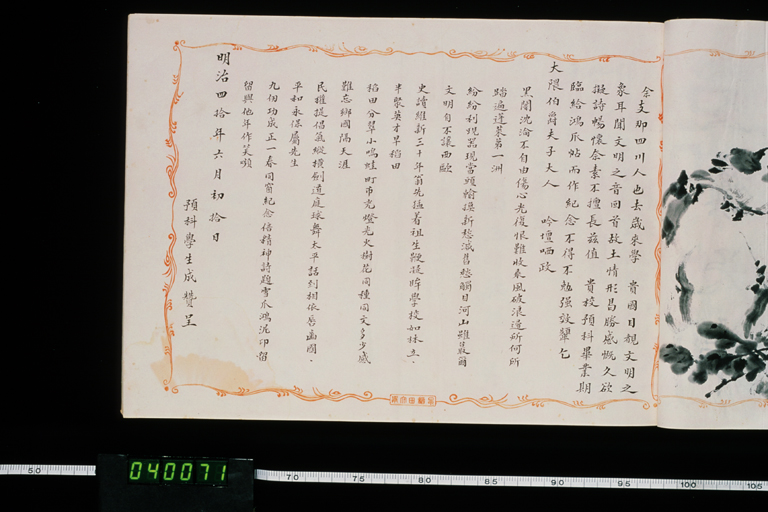 余支那四川人也去歲來學　貴國目覩文明之
象耳聞文明之音回首故土情形曷勝感慨久欲
擬詩暢懷余素不擅長茲值　貴校預科畢業期
臨給鴻爪帖而作紀念不得不勉强效顰乞
大隈伯爵夫子大人　吟壇哂政
黑闇沈淪不自由傷心光復恨難收乘風破浪邊所何所
踏遍蓬萊第一洲
紛紛利現當頭輸換新愁減舊愁瞬目河山雖
文明自不讓西歐
史讀維新三十年翁先猛着祖生鞭後學校如林立
半聚英才早稻田
稻田分翠小鳴蛙町市光燈光火樹花同種同文多少感
難忘鄉國隔天涯
民權提倡氣縱橫劍道庭球舞太平話到相依唇齒國
平和永保屬先生
九個功成正一春同窗紀念倍精神詩題雪爪鴻泥印留
留與他年作笑嚬
明治四拾年六月初拾日
預科學生成贊呈
040071
50
70
75
80
85
90
95
100
105